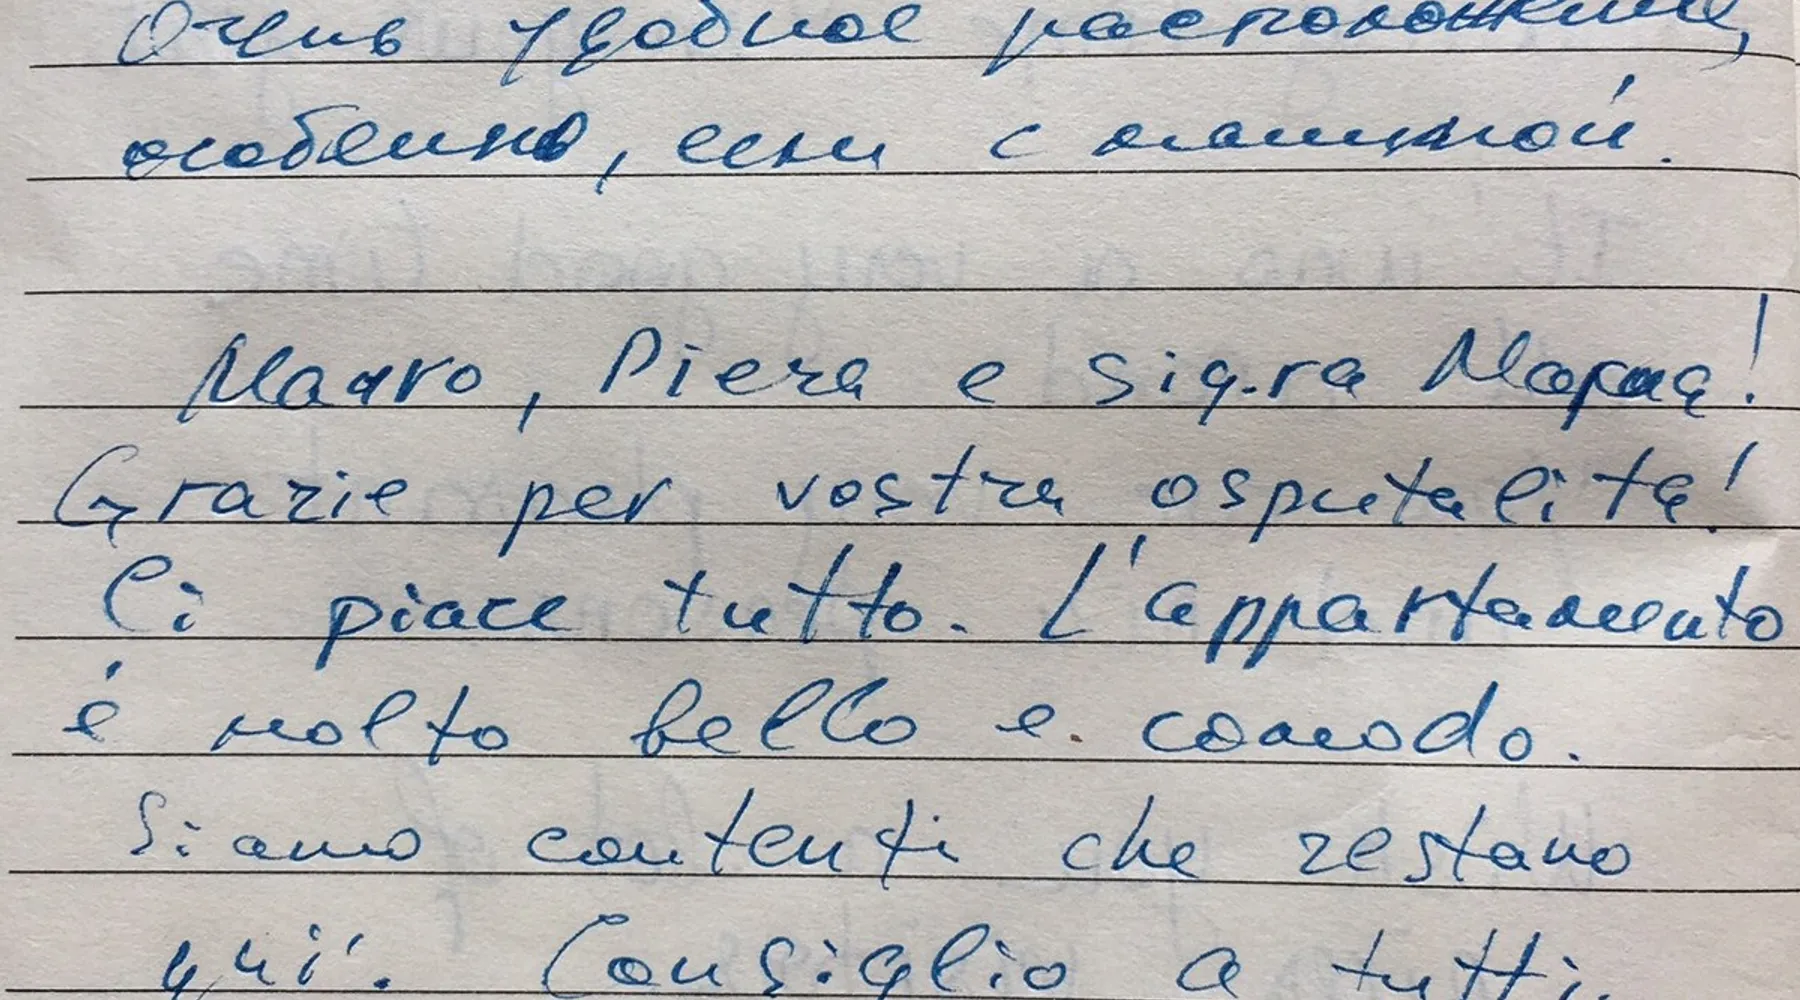 Очень удобное расположение,
особенно, если с машиной.
Mauro, Piera e sig.ra Мариа!
Grazie per vostra ospitalita!
Ci piace tutto. L'appartamento
é molto bello e comodo.
Siamo contenti che restano
qui. Consiglio a tutti.